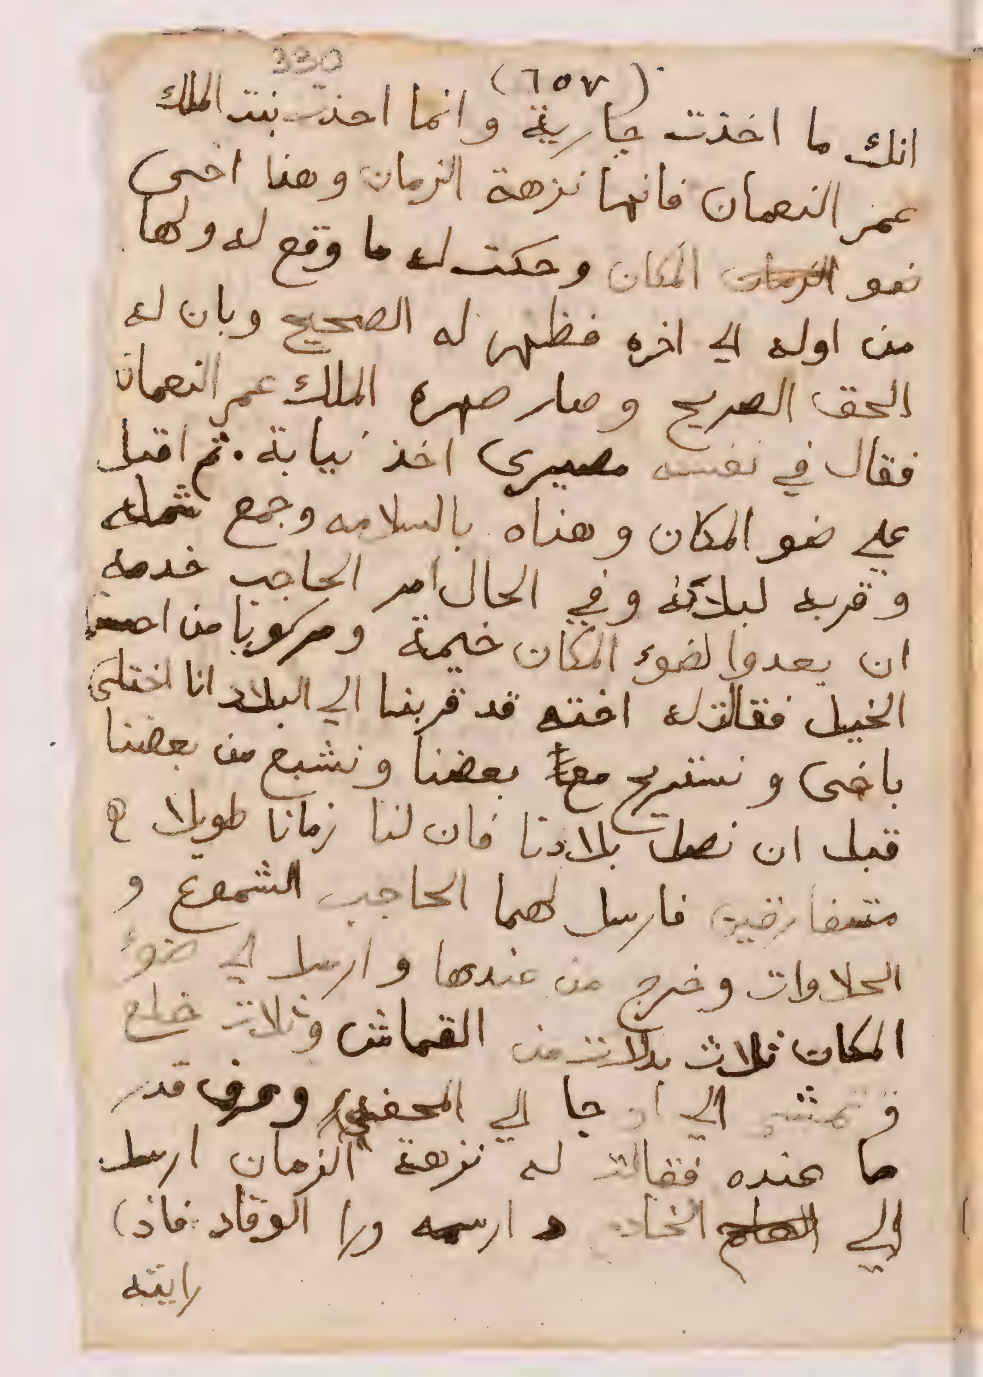 330
(٦٥٧)
انك ما اخذت جارية و انما اخذت بنت الملك
عمر النعمان فانها نزهة الزمان وهذا اخى
ضو الزمان المكان وحكت له ما وقع له ولها
من اوله الي اخره فظهر له الصحيح وبان له
الحق الصريح وصار صهره الملك عمر النعمان
فقال في نفسه مصيرى اخذ نيابة . ثم اقبل
علي ضو المكان وهناه بالسلامه وجمع شمله
وقربه لبلاده وفي الحال امر الحاجب خدمه
ان يعدوا لضوء المكان خيمة ومركوبا من احسن
الخيل فقالت له اخته قد قربنا الي البلاد انا اختلى
باخى و نستريح مع بعضنا ونشبع من بعضنا
قبل ان نصل بلادنا فان لنا زمانا طويلا
متفارقين فارسل لهما الحاجب الشموع و
الحلاوات وخرج من عندها وارسل الي ضوء
المكان ثلاث بدلات من القماش وثلاث خلع
و تمشى الي ان جا الي المحفه وعرف قدر
ما عنده فقالت له نزهة الزمان ارسل
الي الخادم ورا الوقاد فاذ)
رايته